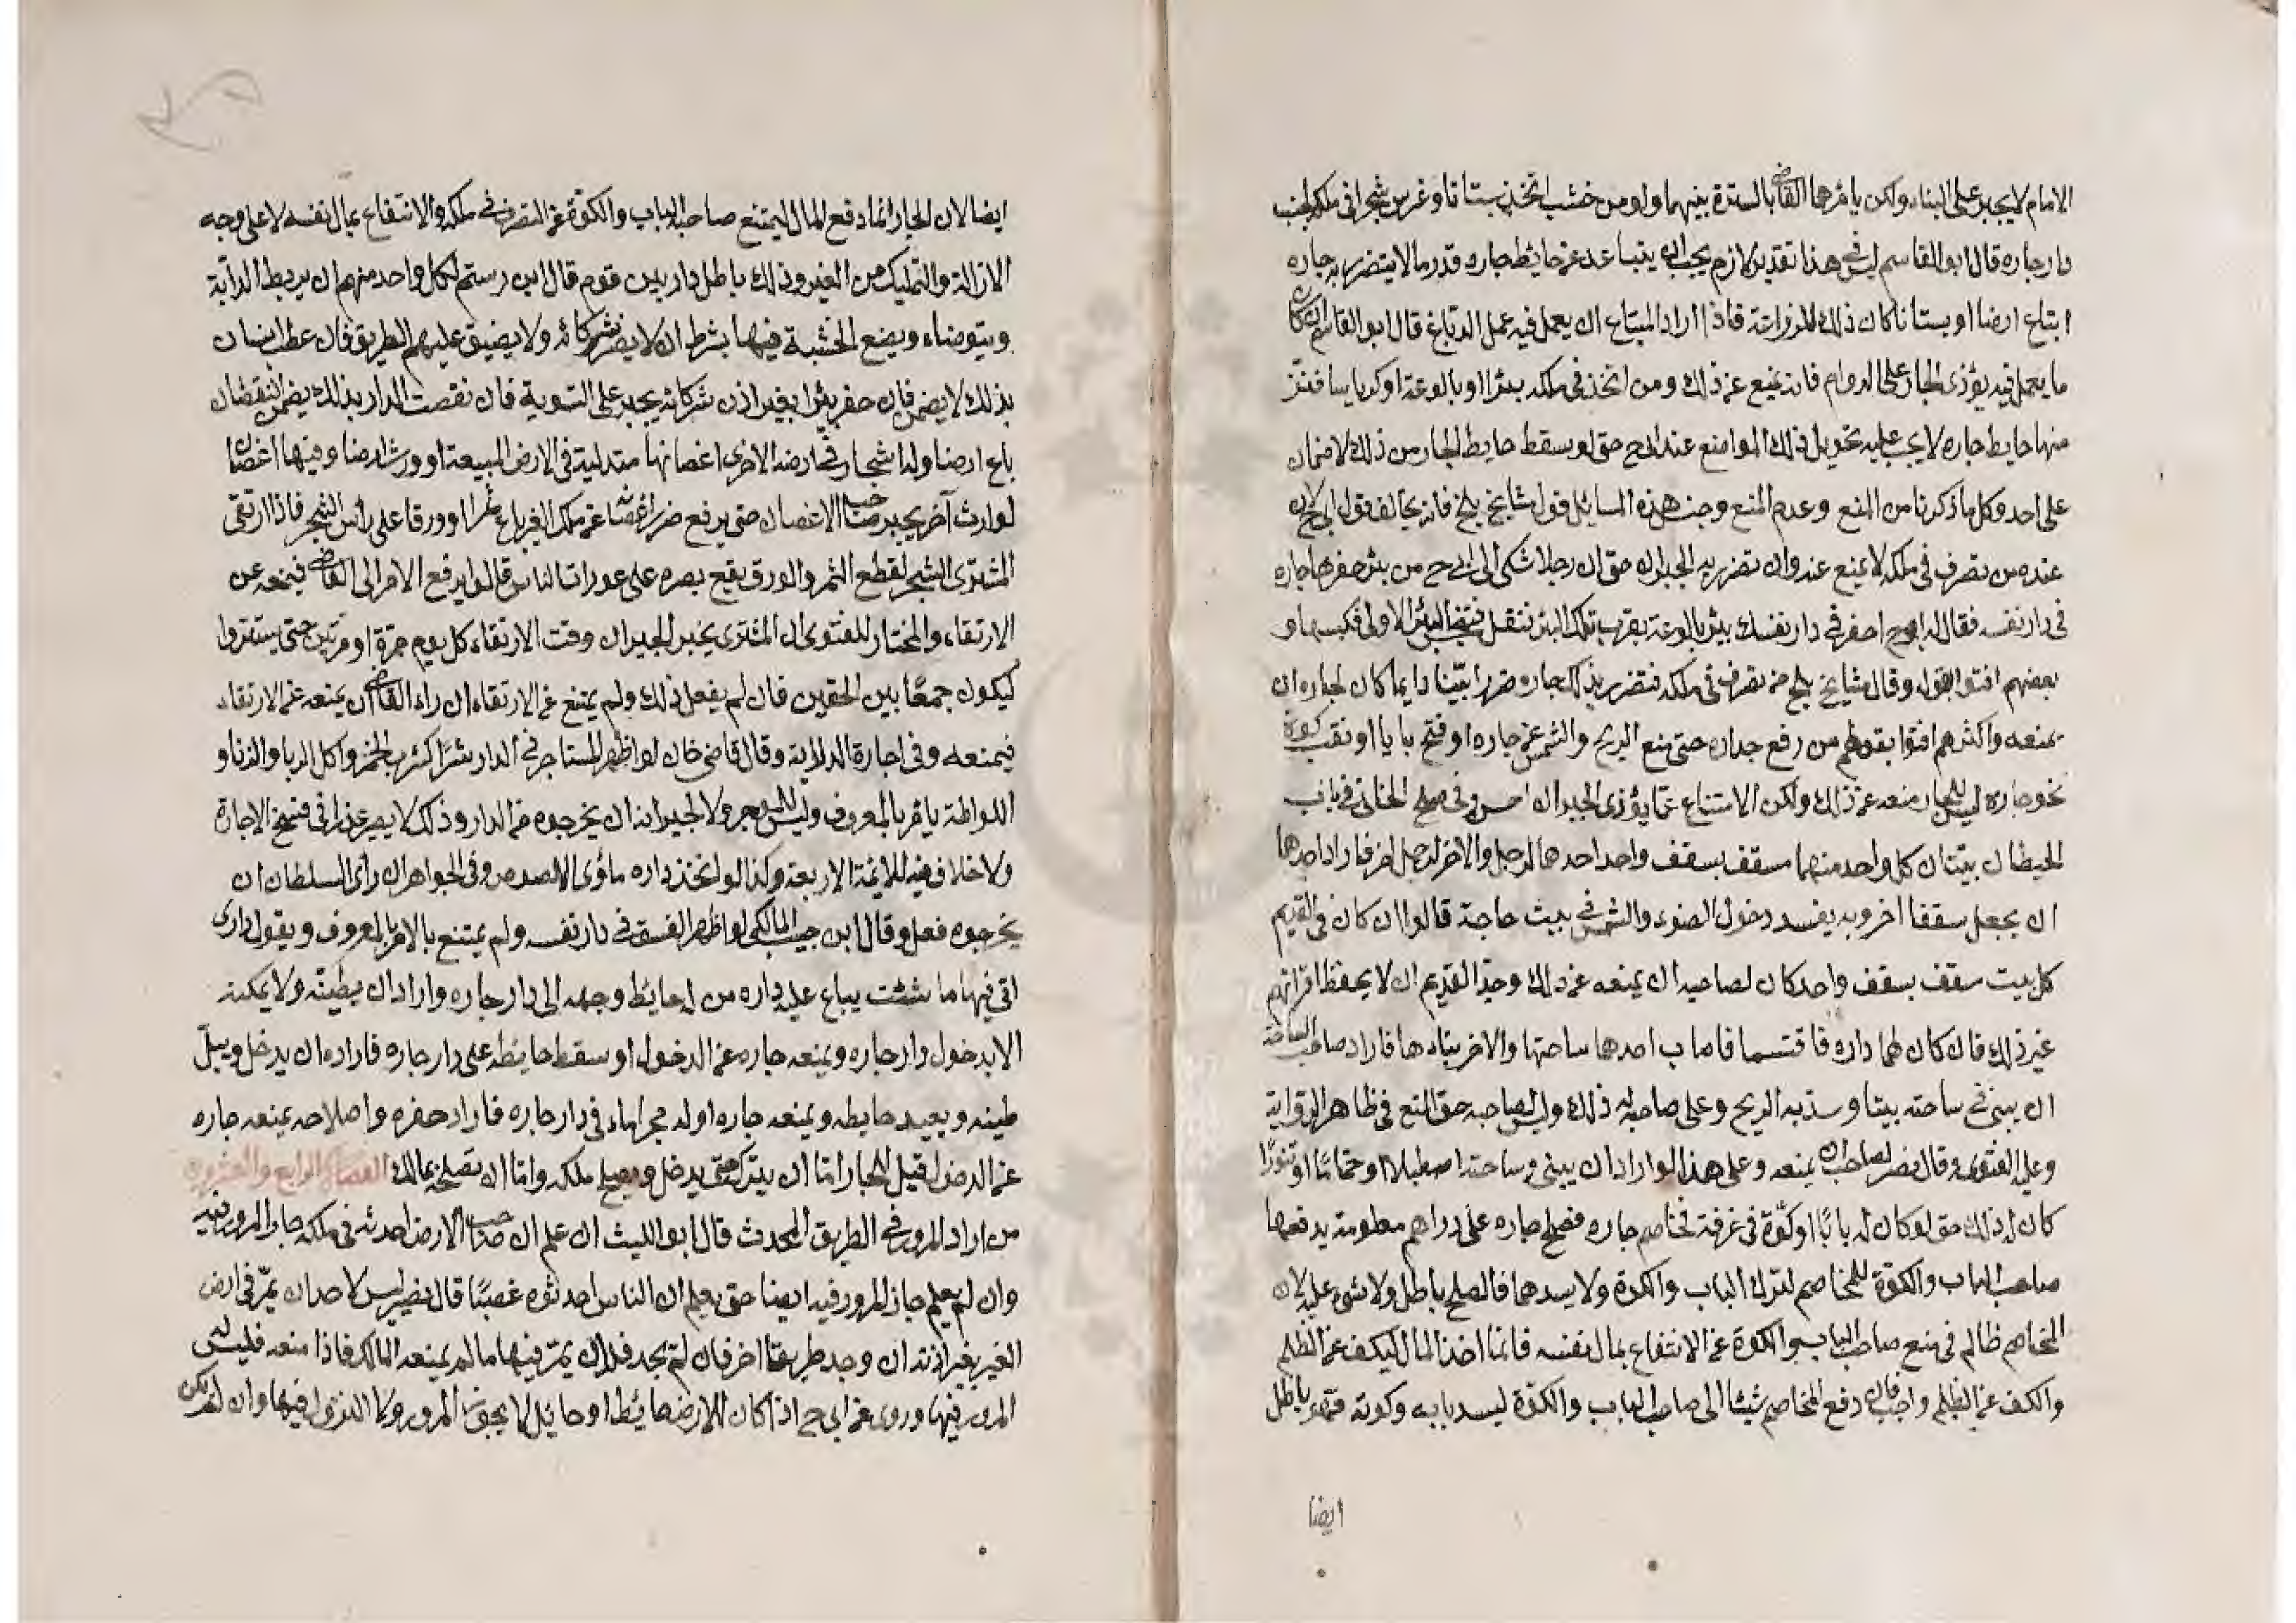 الامام لا يجبر على البناء ولكن يامرهما القاضى بالسترة بينهما ولو من خشب اتخذ بستانا وغرس شجرا فى ملكه بجنب
دار جاره قال ابو القاسم ليس فى هذا تقدير لازم يجب ان يتباعد عن حائط جاره قدر ما لا يتضرر به جاره
ابتاع ارضا او بستانا كان ذلك للزراعة فاذا اراد المبتاع ان يعمل فيه عمل الدباغ قال ابو القاسم ان كان
ما يعمل فيه يؤذى الجار على الدوام فانه يمنع عن ذلك ومن اتخذ فى ملكه بئرا او بالوعة او كرياسا فنز
منها حايط جاره لا يجب عليه تحويل ذلك المواضع عند ابى ح حتى لو سقط حايط الجار من ذلك لا ضمان
على احد وكل ما ذكرنا من المنع وعدم المنع وجنس هذه المسائل قول مشايخ بلخ فانه يخالف قول ابى ح لان
عنده من تصرف فى ملكه لا يمنع عنه وان تضرر به الجيران حتى ان رجلا شكى الى ابى ح من بئر حفرها جاره
فى دار نفسه فقال له ابو ح احفر فى دار نفسك بئر بالوعة بقرب تلك البئر ففعل فتنجس البئر الاولى فكبسها و
بعضهم افتوا بقوله وقال مشايخ بلخ من تصرف فى ملكه فتضرر بذلك جاره ضررا بينا دايما كان لجاره ان
يمنعه واكثرهم افتوا بقولهم من رفع جداره حتى منع الريح والشمس عن جاره او فتح بابا او نقب كوة
نحو جاره ليس للجار منعه عن ذلك ولكن الامتناع عما يؤذى الجيران احسن وفى صلح الخانى فى باب
الحيطان بيتان كل واحد منهما مسقف بسقف واحد احدهما لرجل والاخر لرجل اخر فاراد احدهما
ان يجعل سقفا اخر وبه يفسد دخول الضوء والشمس فى بيت صاحبه قالوا ان كان فى القديم
كل بيت سقف بسقف واحد كان لصاحبه ان يمنعه عن ذلك وحد القديم ان لا يحفظ اقرانهم
غير ذلك فان كان لهما داره فاقتسما فاصاب احدهما ساحتها والاخر بناءها فاراد صاحب الساحة
ان يبنى فى ساحته بيتا وسد به الريح وعلى صاحبه له ذلك وليس لصاحبه حق المنع فى ظاهر الرواية
وعليه الفتوى وقال نصر لصاحبه ان يمنعه وعلى هذا لو اراد ان يبنى فى ساحته اصطبلا او حماما او تنورا
كان له ذلك حتى لو كان له بابا او كوة فى غرفة فخاصم جاره فصلح جاره على دراهم معلومة يدفعها
صاحب الباب والكوة للمخاصم لترك الباب والكوة ولا يسدهما فالصلح باطل ولا شىء عليه لان
المخاصم ظالم فى منع صاحب الباب والكوة عن الانتفاع بمال نفسه فانما اخذ المال ليكف عن الظلم
والكف عن الظلم واجب فان دفع المخاصم شيئا الى صاحب الباب والكوة ليسد بابه وكوته فهو باطل
ايضا
ايضا لان الجار انما دفع المال ليمتنع صاحب الباب والكوة عن التصرف فى ملكه والانتفاع بمال نفسه لا على وجه
الازالة والتمليك من الغير وذلك باطل دار بين قوم قال ابن رستم لكل واحد منهم ان يربط الدابة
ويتوضاء ويضع الخشبة فيها بشرط ان لا يضر شركائه ولا يضيق عليهم الطريق فان عطب انسان
بذلك لا يضمن فان حفر بئرا بغير اذن شركائه يجبر على التسوية فان نقصت الدار بذلك يضمن النقصان
باع ارضا وله اشجار فى ارضه الاخرى اغصانها متدلية فى الارض المبيعة او ورث ارضا وفيها اغصان
لوارث آخر يجبر صاحب الاغصان حتى يرفع ضرر اغصانه عن ملك الغير باع ثمرا او ورقا على رأس الشجر فاذا ارتقى
المشترى الشجر لقطع الثمر والورق يقع بصره على عورات الناس قالوا يرفع الامر الى القاضى فيمنعه عن
الارتقاء والمختار للفتوى ان المشترى يخبر الجيران وقت الارتقاء كل يوم مرة او مرتين حتى يستتروا
ليكون جمعا بين الحقين فان لم يفعل ذلك ولم يمتنع عن الارتقاء ان راء القاضى ان يمنعه عن الارتقاء
فيمنعه وفى اجارة الدلالية وقال قاضى خان لو اظهر المستاجر فى الدار شرا كشرب الخمر واكل الربا والزنا و
اللواطة يامر بالمعروف وليس للموجر ولا لجيرانه ان يخرجوه من الدار وذلك لا يصير عذرا فى فسخ الاجارة
ولا خلاف فيه للائمة الاربعة وكذا لو اتخذ داره مأوى اللصوص وفى الجواهر ان رأى السلطان ان
يخرجوه فعل وقال ابن حبيب المالكى لو اظهر الفسق فى دار نفسه ولم يمتنع بالامر بالمعروف ويقول دارى
اتى فيها ما شئت يباع عليه داره من له حائط وجهه الى دار جاره واراد ان يطينه ولا يمكنه
الا بدخول دار جاره ويمنعه جاره عن الدخول او سقط حايطه على دار جاره فاراده ان يدخل ويبل
طينه ويعيد حايطه ويمنعه جاره او له مجرى ماء فى دار جاره فاراد حفره واصلاحه يمنعه جاره
عن الدخول قيل للجار اما ان يتركه حتى يدخل ويصلح ملكه واما ان تصلحه بمالك الفصل الرابع والعشرون
من اراد المرور فى الطريق المحدث قال ابو الليث ان علم ان صاحب الارض احدثه فى ملكه جاز المرور فيه
وان لم يعلم جاز المرور فيه ايضا حتى يعلم ان الناس احدثوه غصبا قال نصير ليس لاحد ان يمر فى ارض
الغير بغير اذنه ان وجد طريقا اخر فان لم يجد فله ان يمر فيها ما لم يمنعه المالك فاذا منعه فليس له
المرور فيها وروى عن ابى ح اذا كان للارض حائط او حايل لا يحق المرور ولا النزول فيها وان لم يكن